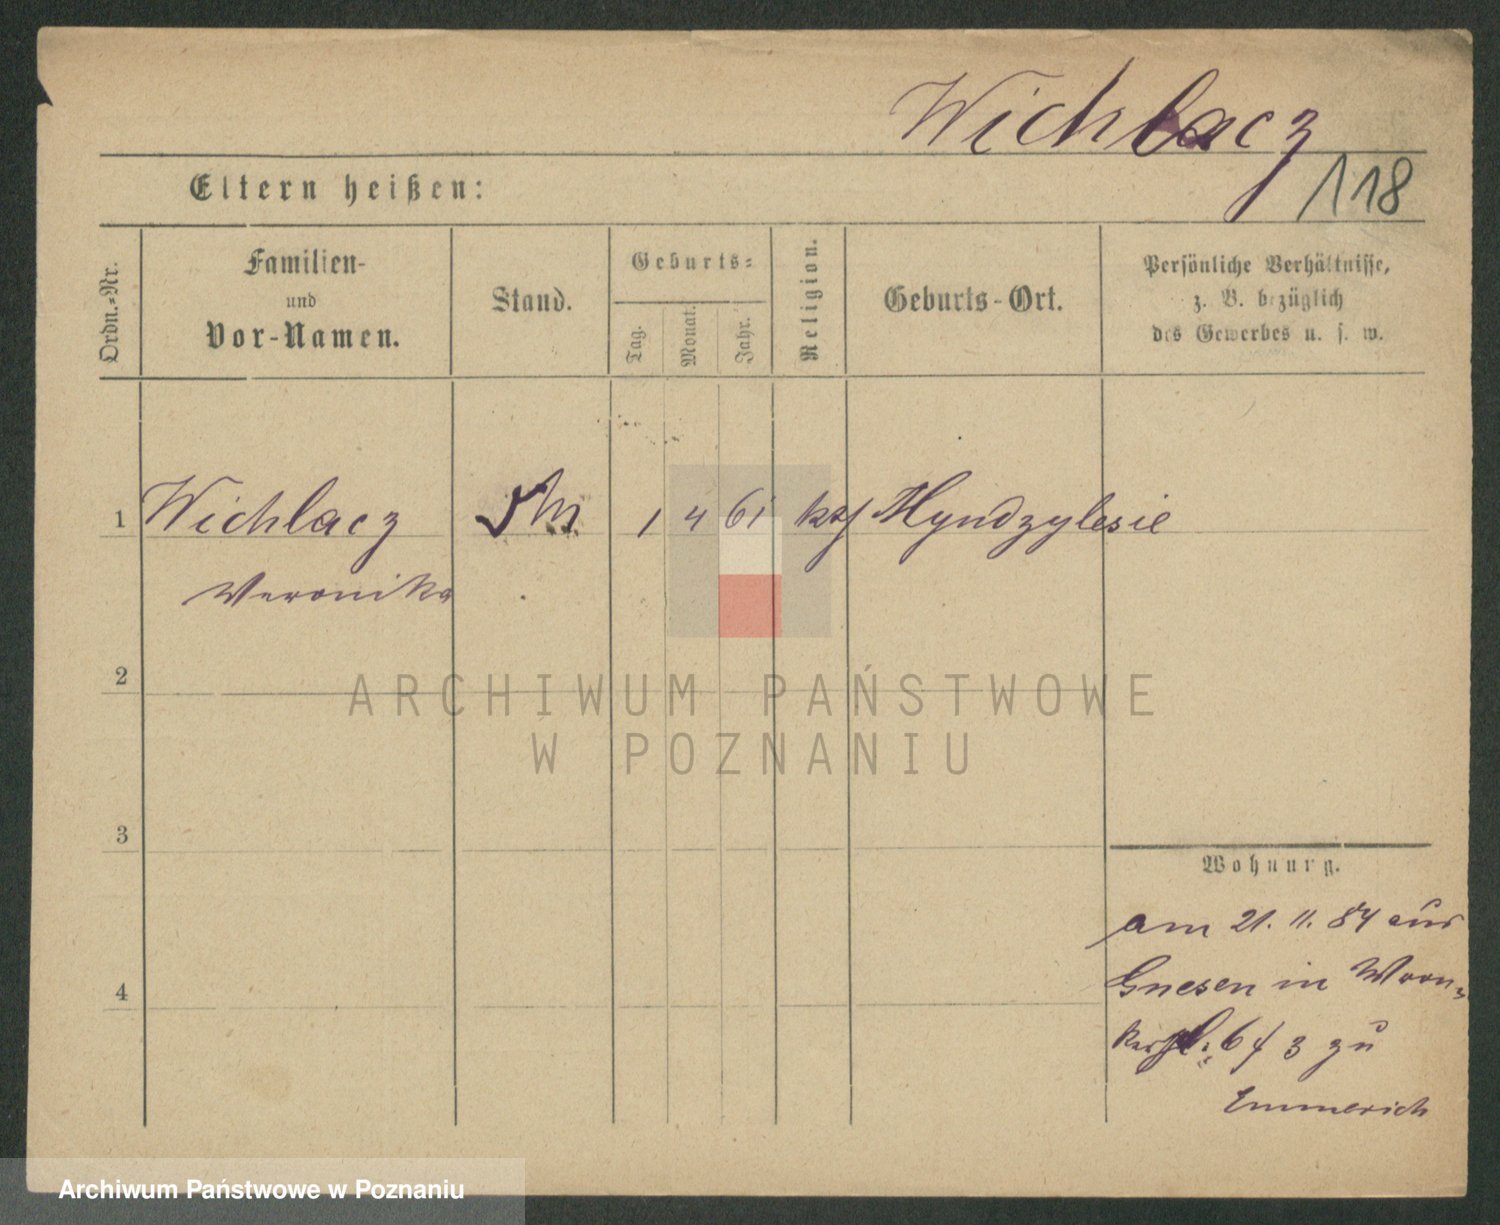 Wichlacz
118
Eltern heißen:
Ordn.-Nr.
Familien-
und
Vor-Namen.
Stand.
Geburts-
Tag.
Monat.
Jahr.
Religion.
Geburts-Ort.
Persönliche Verhältnisse,
z. B. bezüglich
des Gewerbes u. s. w.
1 Wichlacz 1 4 61 kth Myndzylesie
Veronika
2
ARCHIWUM PAŃSTWOWE
W POZNANIU
3
Wohnung.
am 21. 11. 84 aus
Gnesen in Wron-
kerpl: 6/3 zu
4
Emmerich
Archiwum Państwowe w Poznaniu